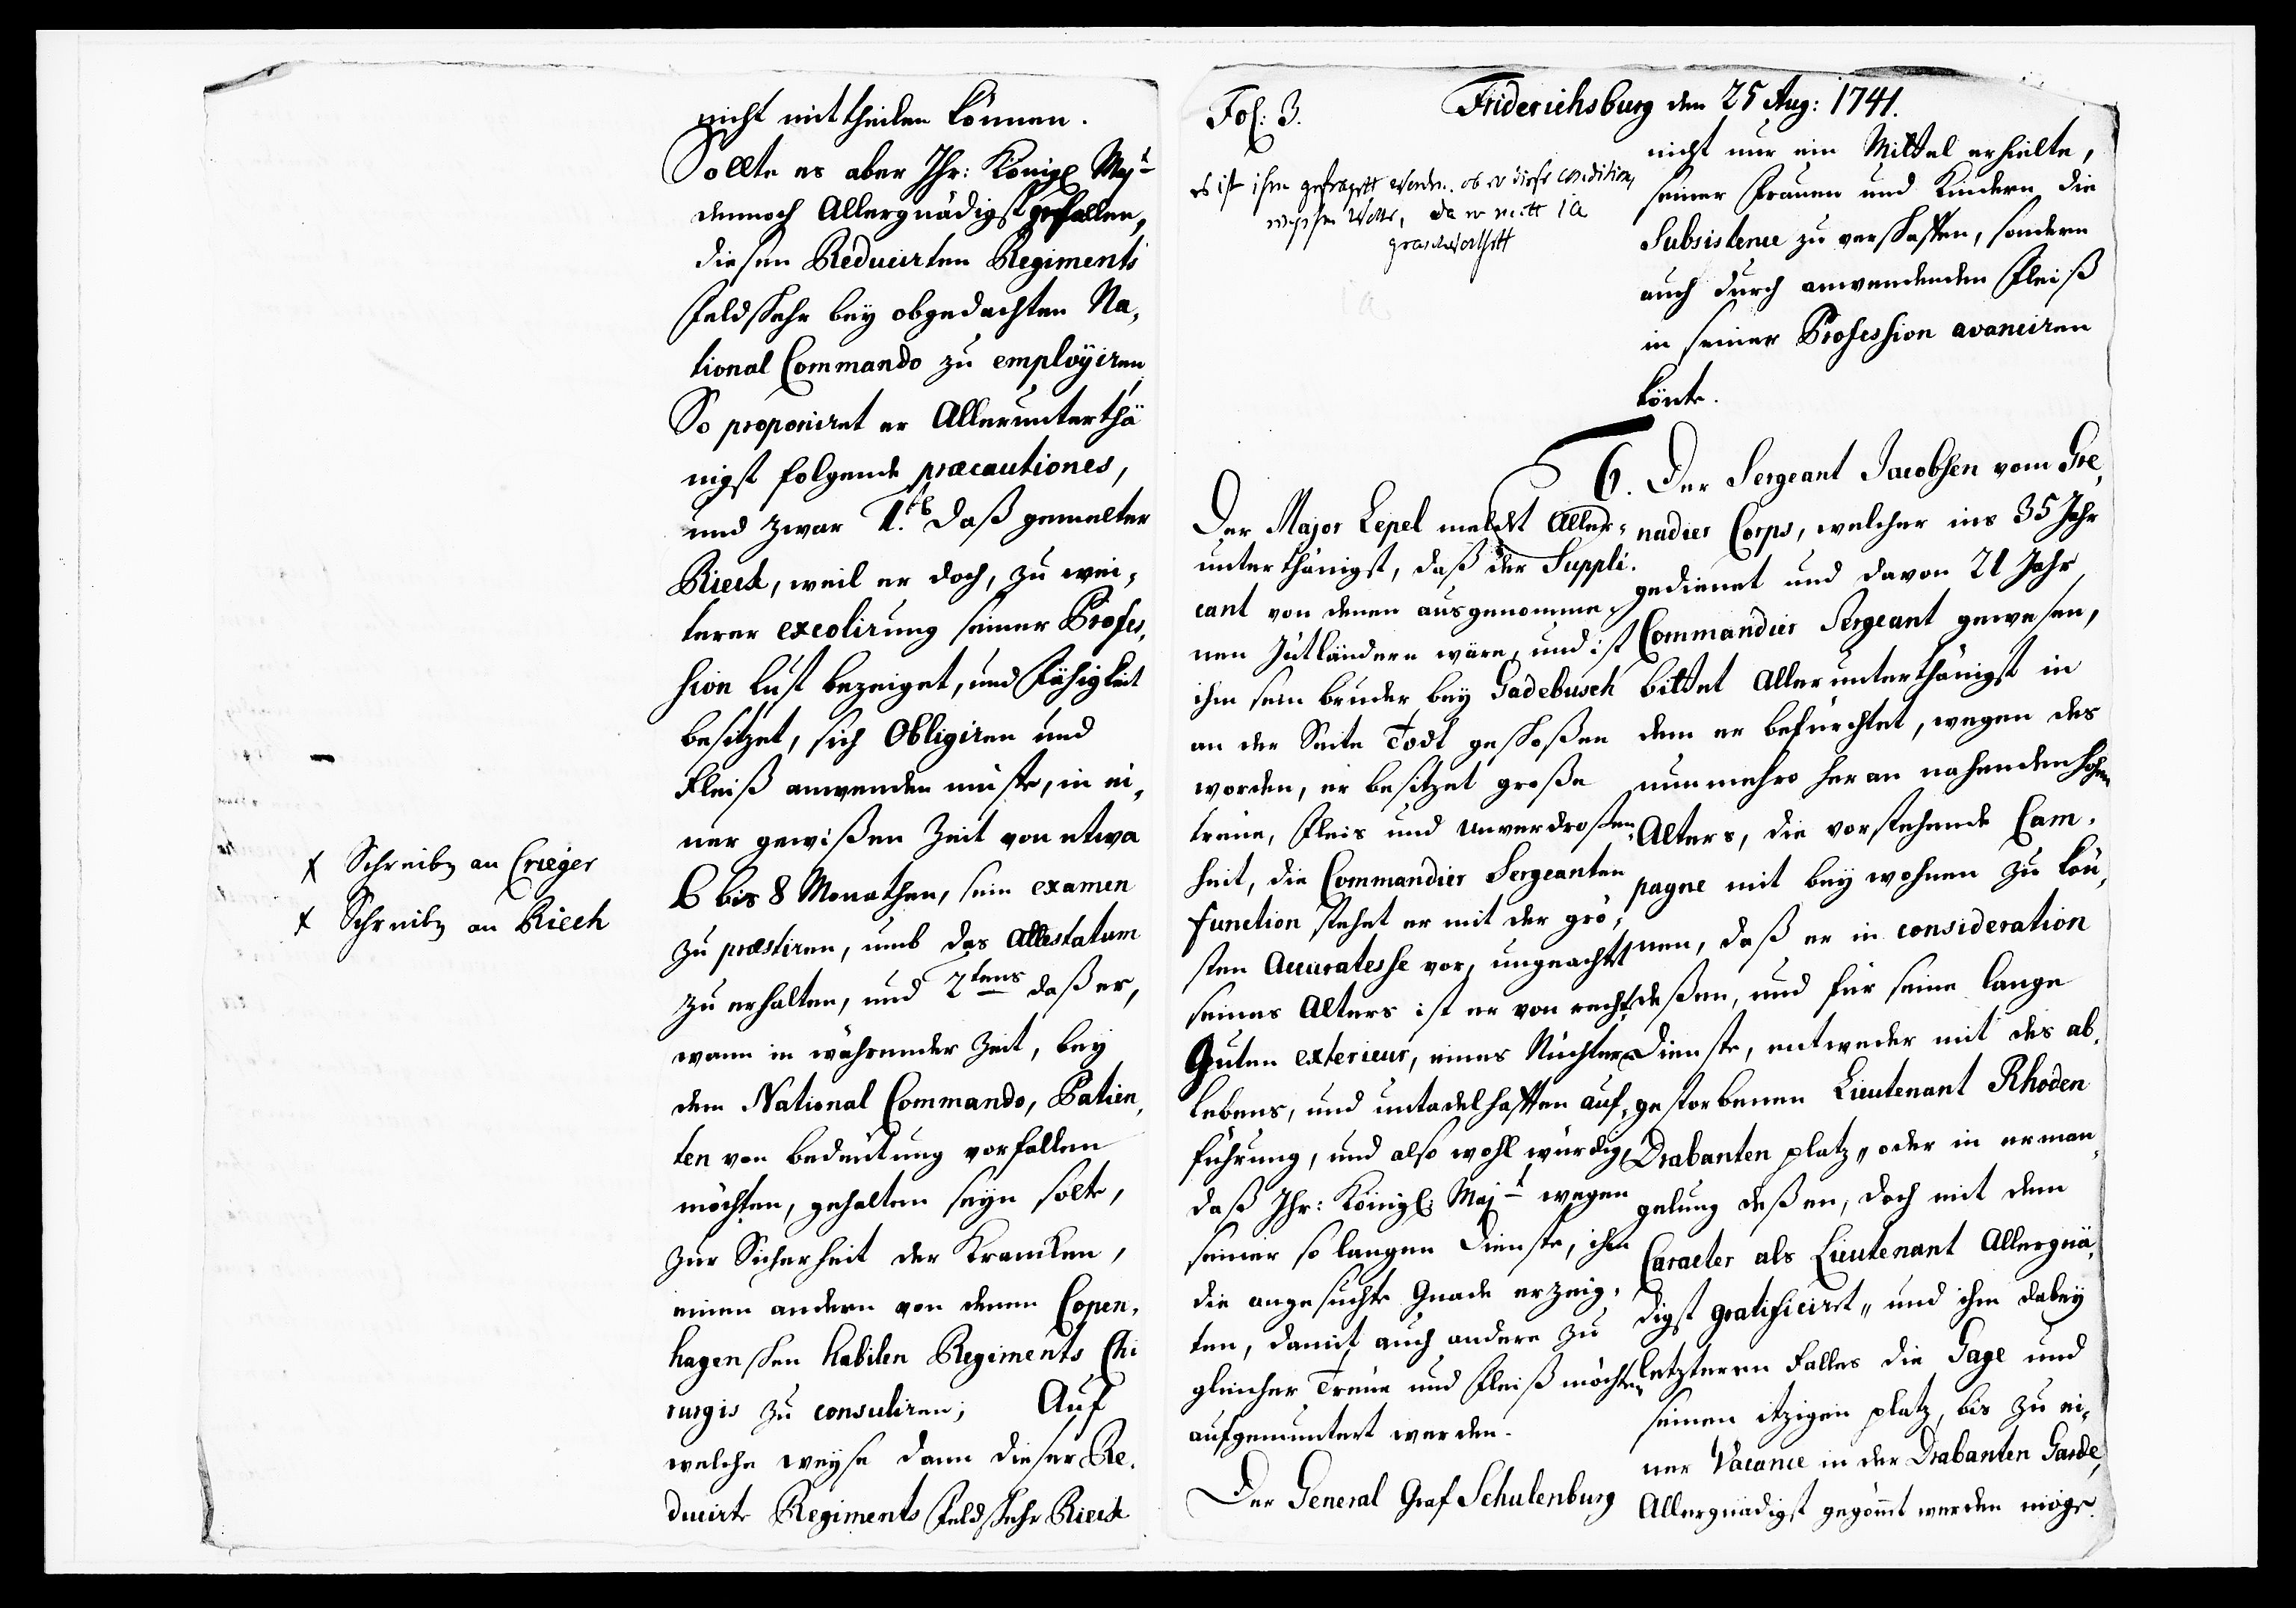 nicht mittheilen können.
Sollte es aber Ihr: Königl Majt
dennoch Allergnädigst gefallen,
diesen Reducirten Regiments
Feldscher bey obgedachten Na,
tional Commando zu employiren
So proponiret er Allerunterthä
nigst folgende præcautiones,
und zwar 1. daß gemelter
Rieck, weil er doch, zu wei,
terer excolirung seiner Profes,
sion lust bezeiget, und Fähigkeit
besitzet, sich Obligiren und
Fleiß anwenden müste, in ei,
ner gewißen Zeit von etwa
6 bis 8 Monathen, sein examen
zu præstiren, umb das Attestatum
zu erhalten, und 2tens daß er,
wann in während Zeit, bey
dem National Commando, Patien,
ten von bedeutung vorfallen
möchten, gehalten seyn solte,
zur Sicherheit der Krancken,
einen andern von denen Copen,
hagenschen habilen Regiments Chi
rurgis zu consuliren; Auf
welche weyse dann dieser Re,
ducirte Regiments Feldscher Rieck
x Schreiben an Crieger
x Schreiben an Rieck
Fol: 3.
Friderichsburg den 25 Aug: 1741.
es ist ihm gefragett worden. ob er diese condition,
Wolte, da er mitt ia
nicht nur ein Mittel erhielte,
seiner Frauen und Kindern die
Subsistence zu verschaffen, sondern
auch durch anwendenden Fleiß
in seiner Profession avanciren
könte.
6. Der Sergeant Jacobsen vom Gre,
nadier Corps, welcher ins 35 Jahr
gedienet und davon 21 Jahr
Commandier Sergeant gewesen,
bittet Allerunterthänigst in
dem er befürchtet, wegen des
nunmehro heran nahenden hohen
Alters, die vorstehende Cam,
pagne mit bey wohnen zu kön,
nen, daß er in consideration
deßen, und für seine lange
Dienste, entweder mit des ab,
gestorbenen Lieutenant Rhoden
Drabanten platz,, oder in erman,
gelung deßen, doch mit dem
Caracter als Lieutenant Allergnä,
digst gratificiret,, und ihm dabey
letzteren Falles die Gage und
seinen itzigen platz, bis zu ei,
ner Vacance in der Drabanten Garde,
Allergnädigst gegönnt werden möge.
Der Major Lepel meldet Aller,
unterthänigst, daß der Suppli,
cant von denen ausgenomme,
nen Jütländern wäre, und ist
ihm sein bruder bey Gadebusch
an der Seite Todt geschoßen
worden, er besitzet große
treue, Fleis und Unverdroßen,
heit, die Commandier Sergeanten
function stehet er mit der grö,
sten Accuratesse vor, ungeachtet
seines Alters ist er von recht
Guten exterieur, eines Nüchtern
lebens, und untadelhafften auf,
führung, und also wohl würdig,
daß Ihr: Königl: Majt wegen
seiner so langen Dienste, ihm
die angesuchte Gnade erzeig,
ten, damit auch andere zu
gleicher Treue und Fleiß möchten
aufgemuntert werden.
Der General Graf Schulenburg